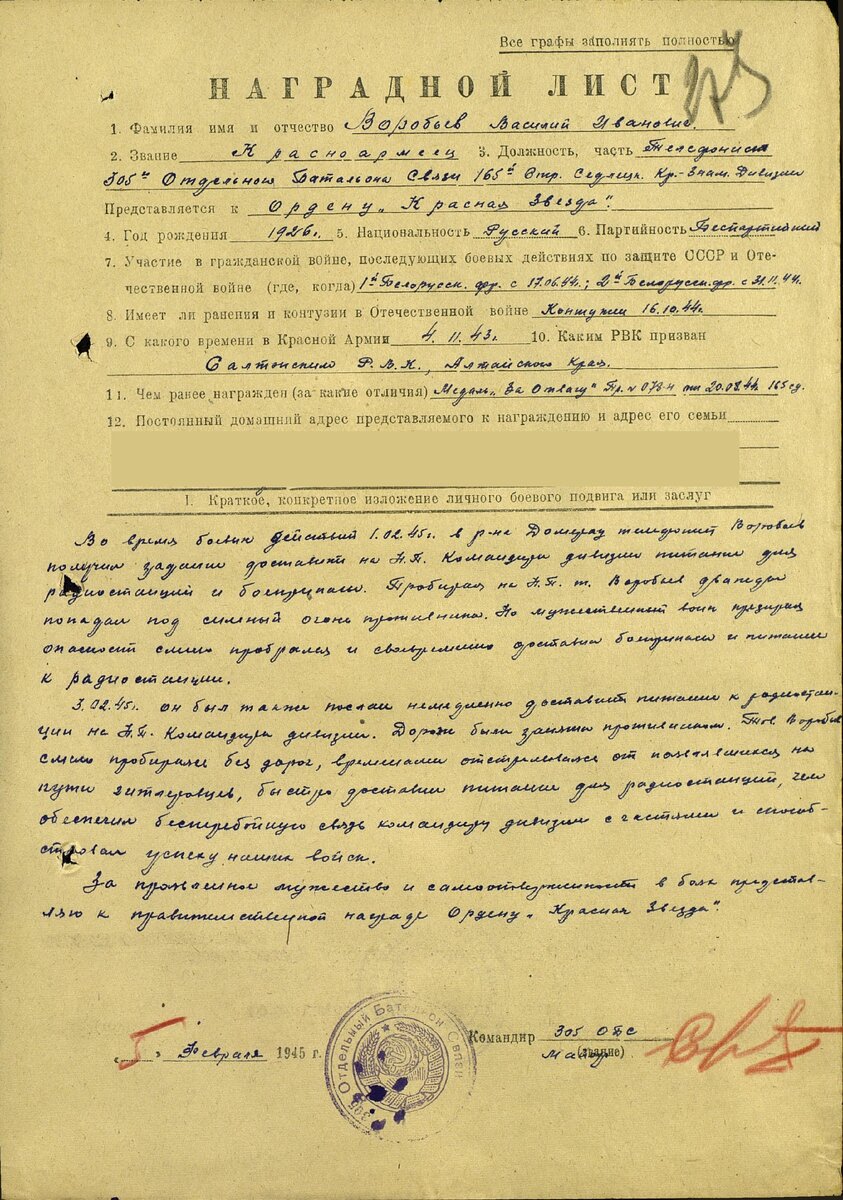 Все графы заполнять полностью
НАГРАДНОЙ ЛИСТ
1. Фамилия имя и отчество Воробьев Василий Иванович.
2. Звание Красноармеец 3. Должность, часть Телефонист
305й Отдельной Батальона Связи 165й Стр. Седлецк. Кр.-Знам. Дивизии
Представляется к Ордену „Красная Звезда".
4. Год рождения 1926г. 5. Национальность Русский 6. Партийность Беспартийный
7. Участие в гражданской войне, последующих боевых действиях по защите СССР и Оте-
чественной войне (где, когда) 1й Белорусск. фр. с 17.06.44г.; 2й Белорусск. фр. с 31.11.44г.
8. Имеет ли ранения и контузии в Отечественной войне Контузия 16.10.44г.
9. С какого времени в Красной Армии 4.11.43г. 10. Каким РВК призван
Салтонским Р.В.К., Алтайского Края.
11. Чем ранее награжден (за какие отличия) Медаль „За Отвагу" Пр. № 078-н от 20.08.44г. 165 сд.
12. Постоянный домашний адрес представляемого к награждению и адрес его семьи
I. Краткое, конкретное изложение личного боевого подвига или заслуг
Во время боевых действий 1.02.45г. в р-не Домерау телефонист Воробьев
получил задание доставить на Н.П. Командира дивизии питание для
радиостанций и боеприпасы. Пробираясь на Н.П. т. Воробьев дважды
попадал под сильный огонь противника. Но мужественный воин презирая
опасность смело пробрался и своевременно доставил боеприпасы и питание
к радиостанции.
3.02.45г. он был также послан немедленно доставить питание к радиостан-
ции на Н.П. Командира дивизии. Дорога была занята противником. Тов. Воробьев
смело пробирался без дорог, временами отстреливаясь от появлявшихся на
пути гитлеровцев, быстро доставил питание для радиостанций, чем
обеспечил бесперебойную связь командиру дивизии с частями и способ-
ствовал успеху наших войск.
За проявленное мужество и самоотверженность в боях представ-
ляю к правительственной награде Ордену „Красная Звезда".
„5" Февраля 1945 г.
Командир 305 ОБС
Майор (звание)
305 Отдельный Батальон Связи